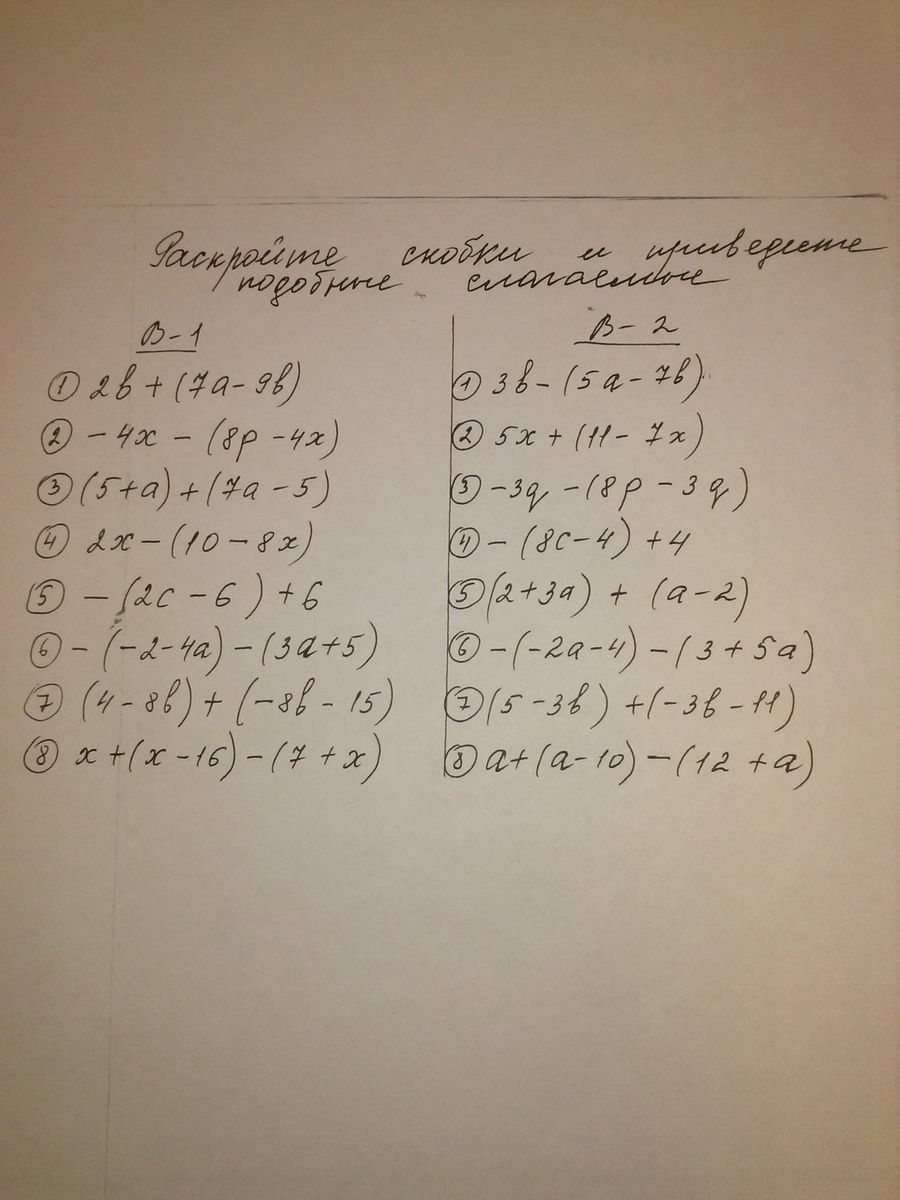 Раскройте скобки и приведите
подобные слагаемые
В-1
① 2b + (7a - 9b)
② - 4x - (8p - 4x)
③ (5+a) + (7a - 5)
④ 2x - (10 - 8x)
⑤ - (2c - 6) + 6
⑥ - (-2 - 4a) - (3a + 5)
⑦ (4 - 8b) + (-8b - 15)
⑧ x + (x - 16) - (7 + x)
В - 2
① 3b - (5a - 7b)
② 5x + (11 - 7x)
③ -3q - (8p - 3q)
④ - (8c - 4) + 4
⑤ (2 + 3a) + (a - 2)
⑥ - (-2a - 4) - (3 + 5a)
⑦ (5 - 3b) + (-3b - 11)
⑧ a + (a - 10) - (12 + a)